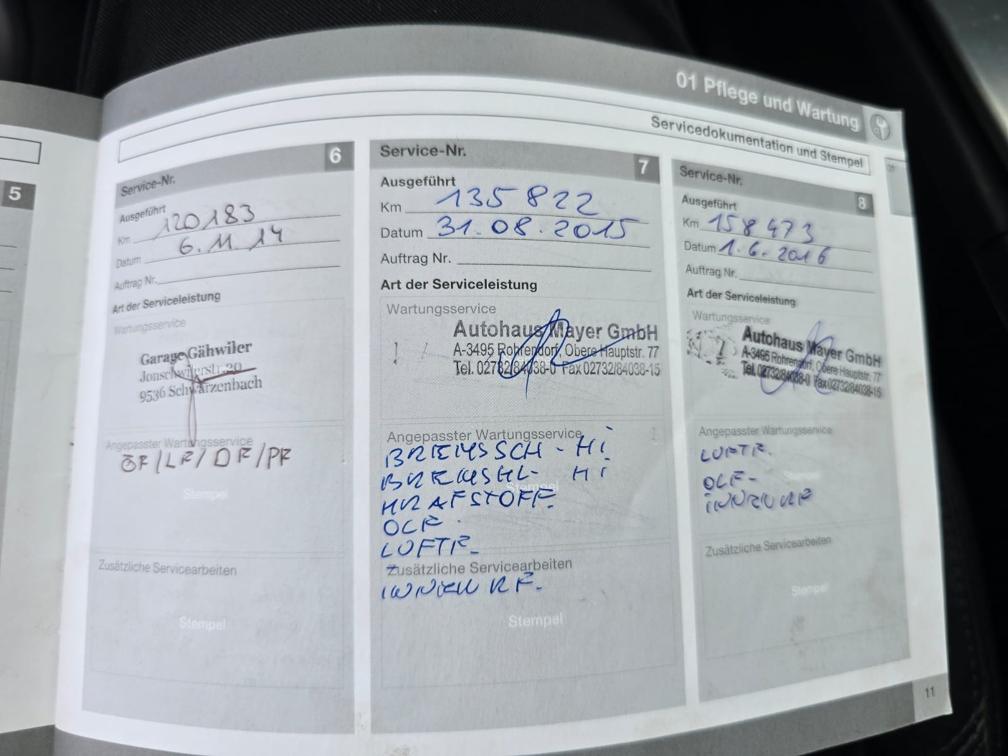 01 Pflege und Wartung
Servicedokumentation und Stempel
5
Service-Nr. 6
Ausgeführt
Km 120183
Datum 6.11 14
Auftrag Nr.
Art der Serviceleistung
Wartungsservice
Garage Gähwiler
Jonschwilerstr. 20
9536 Schwarzenbach
Angepasster Wartungsservice
ÖF/LF/DF/PF
Stempel
Zusätzliche Servicearbeiten
Stempel
Service-Nr. 7
Ausgeführt
Km 135822
Datum 31.08.2015
Auftrag Nr.
Art der Serviceleistung
Wartungsservice
Autohaus Mayer GmbH
A-3495 Rohrendorf, Obere Hauptstr. 77
Tel. 02732/84038-0 Fax 02732/84038-15
Angepasster Wartungsservice
BREMSSCH - Hi
BREMSKL - Hi
KRAFSTOFF.
OLF
LUFTF.
Stempel
Zusätzliche Servicearbeiten
INNENRF.
Stempel
Service-Nr. 8
Ausgeführt
Km 158473
Datum 1.6.2016
Auftrag Nr.
Art der Serviceleistung
Wartungsservice
Autohaus Mayer GmbH
A-3495 Rohrendorf, Obere Hauptstr. 77
Tel. 02732/84038-0 Fax 02732/84038-15
Angepasster Wartungsservice
LUFTF.
OLF-
INNENRF
Zusätzliche Servicearbeiten
Stempel
11